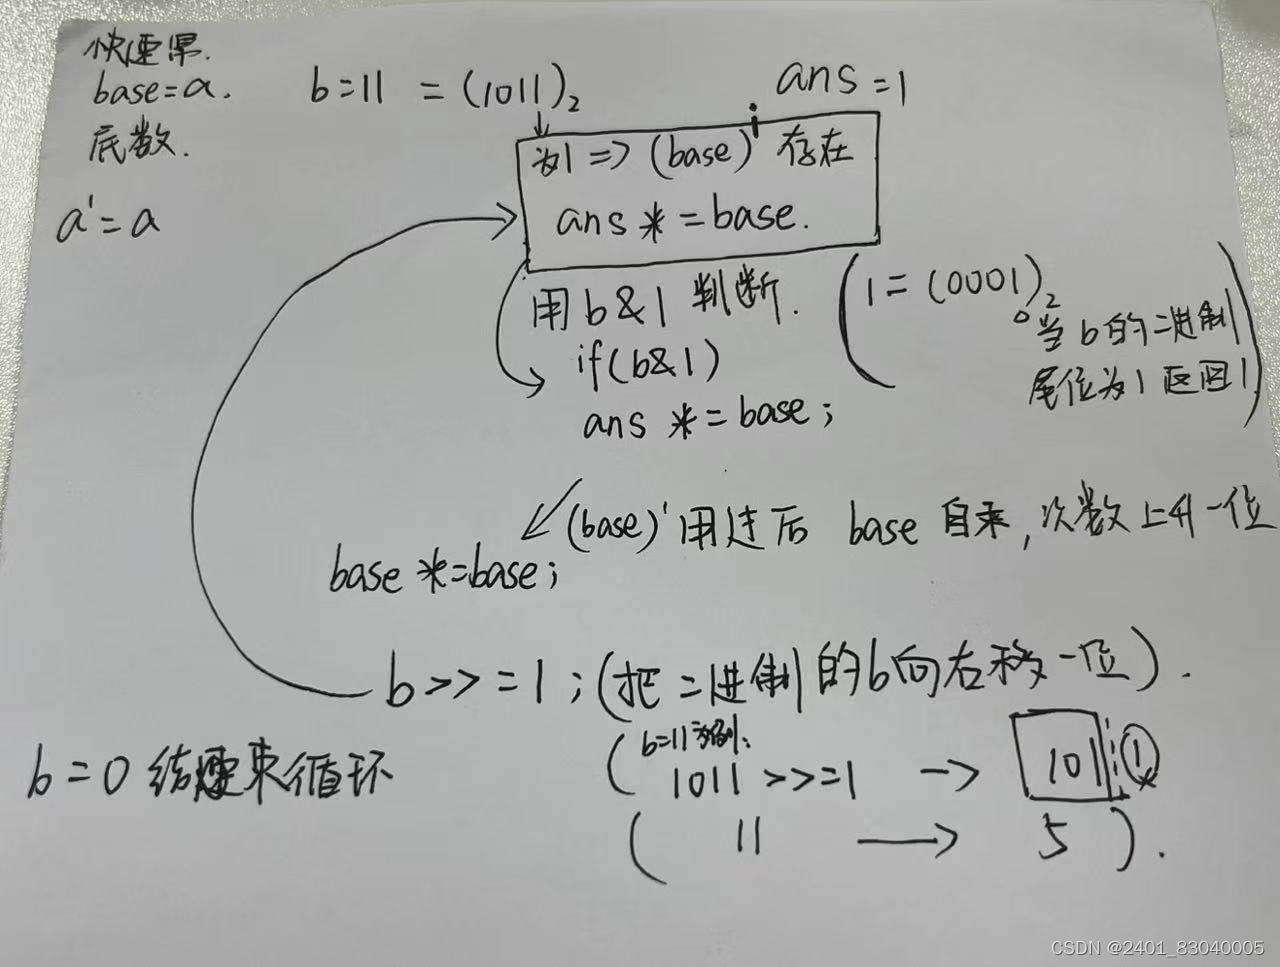 快速幂.
base=a.
底数.
b=11 = (1011)₂
ans=1
a'=a
为1 => (base)^i 存在
ans *=base.
用b&1 判断.
if(b&1)
ans *=base;
(1=(0001)₂
当b的二进制
尾位为1返回1)
(base)' 用过后 base 自乘,次数上升一位
base *=base;
b>>=1;(把二进制的b向右移一位).
b=0 结束循环
(b=11为例:
1011 >>=1 -> 101 1
( 11 -> 5 ).
CSDN @2401_83040005